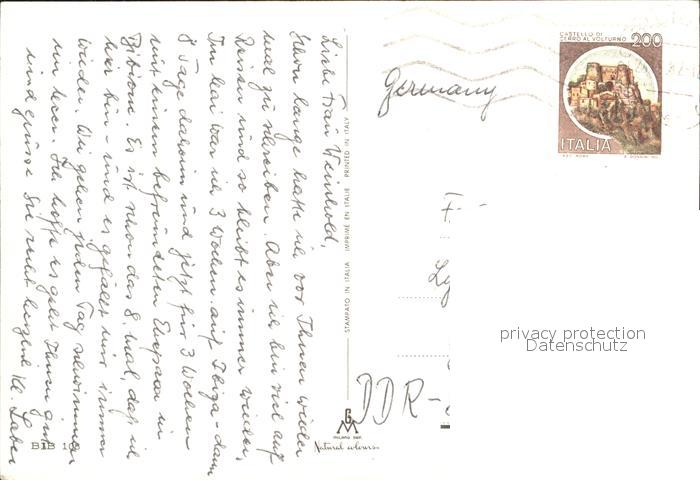 Liebe Frau Weinhold,
schon lange hatte ich vor Ihnen wieder
mal zu schreiben. Aber ich bin viel auf
Reisen und so bleibt es immer wieder.
Im Mai war ich 3 Wochen auf Ibiza - dann
8 Tage daheim und jetzt für 3 Wochen
mit einem befreundeten Ehepaar in
Bibione. Es ist schon das 8. mal, daß ich
hier bin - und es gefällt mir immer
wieder. Wir gehen jeden Tag schwimmen
im Meer. Ich hoffe es geht Ihnen gut
und grüsse Sie recht herzlich
BIB 10
STAMPATO IN ITALIA IMPRIMÉ EN ITALIE PRINTED IN ITALY
MILANO
Natural colours
CASTELLO DI
CERRO AL VOLTURNO 200
ITALIA
Germany
F
Ly
DDR-
privacy protection
Datenschutz